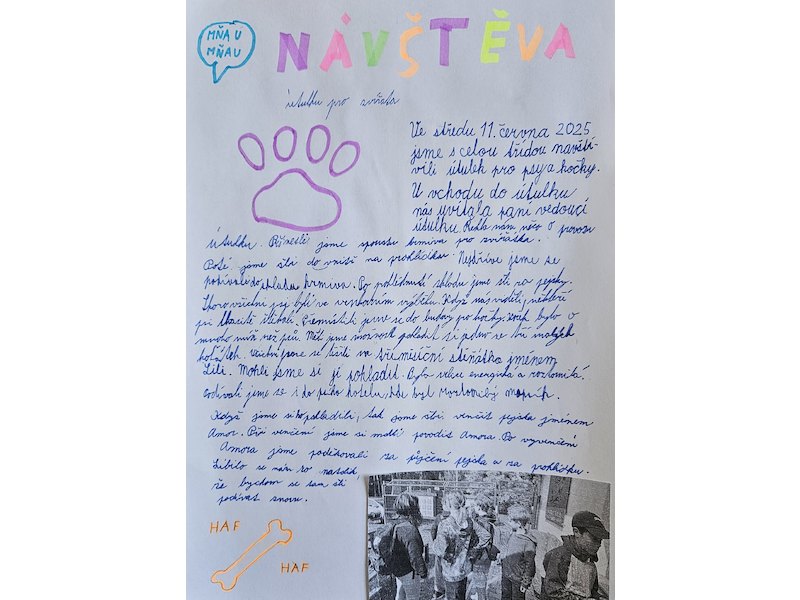 MŇAU
MŇAU
NÁVŠTĚVA
útulku pro zvířata
Ve středu 11. června 2025
jsme s celou třídou navští-
vili útulek pro psy a kočky.
U vchodu do útulku
nás uvítala paní vedoucí
útulku. Řekla nám něco o provozu
útulku. Přinesli jsme spoustu krmiva pro zvířátka.
Poté jsme šli do vnitř na prohlídku. Nejdříve jsme se
podívali do skladu krmiva. Po prohlédnutí skladu jsme šli na pejsky.
Skoro všichni psi byli ve venkovním výběhu. Když nás viděli, někteří
psi hlasitě štěkali. Přemístili jsme se do budovy pro kočky. Koček bylo o
mnoho míň než psů. Měli jsme možnost pohladit si jedno ze tří malých
koťátek. Všichni jsme se těšili na tříměsíční štěňátko jménem
Lili. Mohli jsme si jí pohladit. Byla velice energická a roztomilá.
Podívali jsme se i do psího hotelu, kde byl roztomilý mopsík.
Když jsme si ho pohladili, tak jsme šli venčit pejska jménem
Amor. Při venčení jsme si mohli povodit Amora. Po vyvenčení
Amora jsme poděkovali za půjčení pejska a za prohlídku.
Líbilo se nám to natolik
že bychom se tam šli
podívat znovu.
HAF
HAF